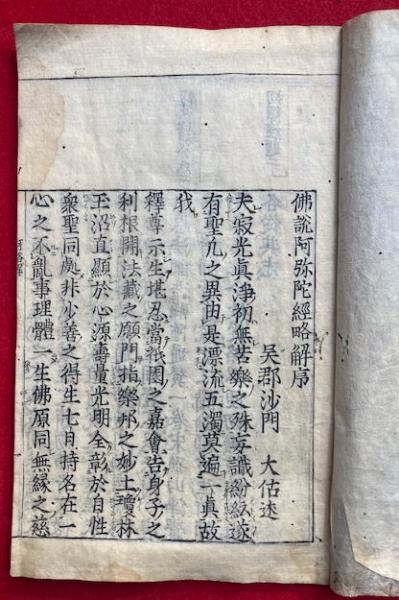 佛說阿弥陀經略解序
吳郡沙門　大佑述
夫寂光眞淨初無苦樂之殊妄識紛紜遂
有聖凡之異由是漂流五濁莫遍一眞故
我
釋尊示生堪忍當祇園之嘉會告身子之
利根開法藏之願門指樂邦之妙土瓊林
玉沼直顯於心源壽量光明全彰於自性
衆聖同處非少善之得生七日持名在一
心之不亂事理體一生佛原同無緣之慈